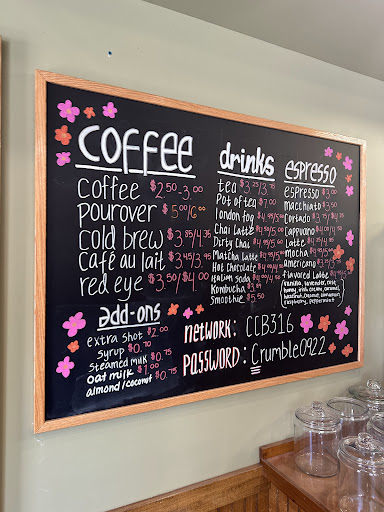 COFFEE
coffee $2.50-3.00
pourover $5.00/6.00
cold brew $3.85/4.35
café au lait $3.45/3.95
red eye $3.50/$4.00
add-ons
extra shot $2.00
syrup $0.70
steamed milk $0.75
oat milk $1.00
almond/coconut $0.75
drinks
tea $3.25/3.75
Pot of tea $7.00
london fog
Chai Latte
Dirty Chai
Matcha Latte
Hot Chocolate
Italian soda
Kombucha
Smoothie $5.50
espresso
espresso $3.00
macchiato
Cortado
Cappuccino
Latte
mocha
americano
flavored Latte
vanilla, lavender, rose,
honey, irish cream, caramel,
hazelnut, coconut, cinnamon,
raspberry, peppermint
network: CCB316
PASSWORD: Crumble0922